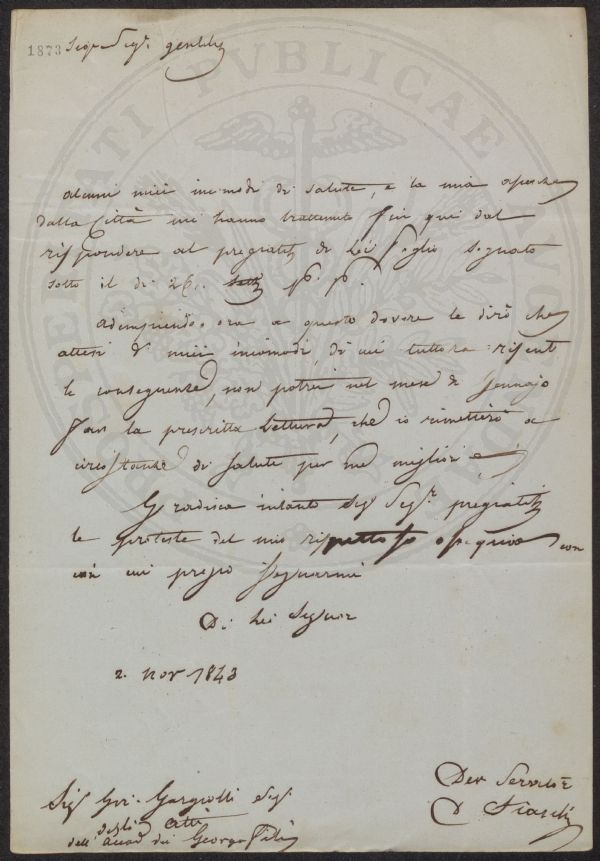 1873
Sigr Sigr gentile
PROSPERITATI PUBLICAE AUGENDAE
alcuni miei incomodi di salute, e la mia assenza
dalla Città mi hanno trattenuto fin qui dal
rispondere al pregiato di Lei foglio segnato
sotto il dì 26. p. p.
Adempiendo ora a questo dovere le dirò che
attesi i miei incomodi, di cui tuttora risento
le conseguenze, non potrei nel mese di Gennajo
far la prescritta Lettura, che io rimetterò a
circostanze di salute per me migliori
Gradisca intanto Sig Sigr pregiatis
le proteste del mio rispettoso ossequio con
cui mi pregio segnarmi
Di Lei Signor
2. Nov 1843
Dev Servitore
Sig Gargiolli Segr
degli Atti
dell' Accad dei Georgofili